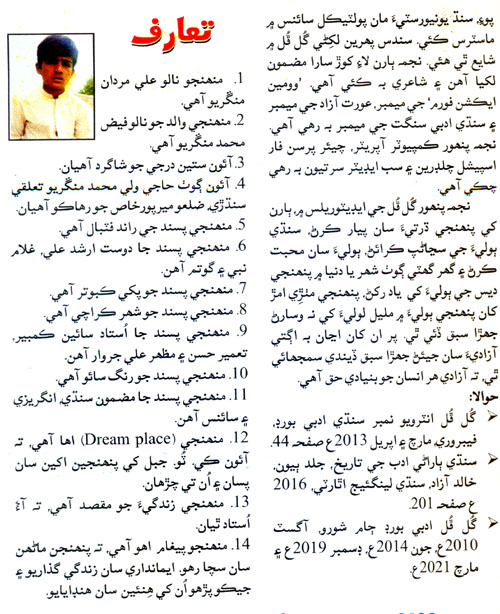 پوءِ، سنڌ يونيورسٽيءَ مان پوليٽيڪل سائنس ۾
ماسٽرس ڪئي. سندس پهرين لکڻي گُل ڦُل ۾
شايع ٿي هئي. نجمه ٻارن لاءِ ڪوڙ سارا مضمون
لکيا آهن ۽ شاعري به ڪئي آهي. ’وومين
ايڪشن فورم‘ جي ميمبر، عورت آزاد جي ميمبر
۽ سنڌي ادبي سنگت جي ميمبر به رهي آهي.
نجمه پنهور ڪمپيوٽر آپريٽر، چيئر پرسن فار
اسپيشل چلڊرين ۽ سب ايڊيٽر سرتيون به رهي
چڪي آهي.
نجمه پنهور گُل ڦُل جي ايڊيٽوريلس ۾، ٻارن
کي پنهنجي ڌرتيءَ سان پيار ڪرڻ، سنڌي
ٻوليءَ جي سڃاڻپ ڪرائڻ، ٻوليءَ سان محبت
ڪرڻ ۽ گهر گهٽي ڳوٺ شهر يا دنيا ۾ پنهنجي
ديس جي ٻوليءَ کي ياد رکڻ. پنهنجي مٺڙي امڙ
کان پنهنجي ٻوليءَ ۾ مليل لوليءَ کي نه وسارڻ
جهڙا سبق ڏئي ٿي. پر ان کان اڃان به اڳتي
آزاديءَ سان جيئڻ جهڙا سبق ڏيندي سمجهائي
ٿي، ته آزادي هر انسان جو بنيادي حق آهي.
حوالا:
➤ گُل ڦُل انٽرويو نمبر سنڌي ادبي بورڊ،
فيبروري، مارچ ۽ اپريل 2013ع صفحه 44.
➤ سنڌي ٻاراڻي ادب جي تاريخ، جلد ٻيون،
خالد آزاد، سنڌي لينگئيج اٿارٽي، 2016
ع صفحه 201.
➤ گُل ڦُل ادبي بورڊ ڄام شورو، آگسٽ
2010ع، جون 2014ع، ڊسمبر 2019ع ۽
مارچ 2021ع.
تعارف
1. منهنجو نالو علي مردان
منگريو آهي.
2. منهنجي والد جو نالو فيض
محمد منگريو آهي.
3. آئون ستين درجي جو شاگرد آهيان.
4. آئون ڳوٺ حاجي ولي محمد منگريو تعلقي
سنڌڙي، ضلعو ميرپورخاص جو رهاڪو آهيان.
5. منهنجي پسند جي راند فٽبال آهي.
6. منهنجي پسند جا دوست ارشد علي، غلام
نبي ۽ گوتم آهن.
7. منهنجي پسند جو پکي ڪبوتر آهي.
8. منهنجي پسند جو شهر ڪراچي آهي.
9. منهنجي پسند جا اُستاد سائين ڪمبير،
تعمير حسن ۽ مظهر علي جروار آهن.
10. منهنجي پسند جو رنگ سائو آهي.
11. منهنجي پسند جا مضمون سنڌي، انگريزي
۽ سائنس آهن.
12. منهنجي (Dream place) اها آهي، ته
آئون کي. ٽو. جبل کي پنهنجين اکين سان
پسان ۽ اُن تي چڙهان.
13. منهنجي زندگيءَ جو مقصد آهي، ته آءٌ
اُستاد ٿيان.
14. منهنجو پيغام اهو آهي، ته پنهنجن ماڻهن
سان سچا رهو. ايمانداري سان زندگي گذاريو ۽
جيڪو پڙهو اُن کي هِنئين سان هنڊايايو.